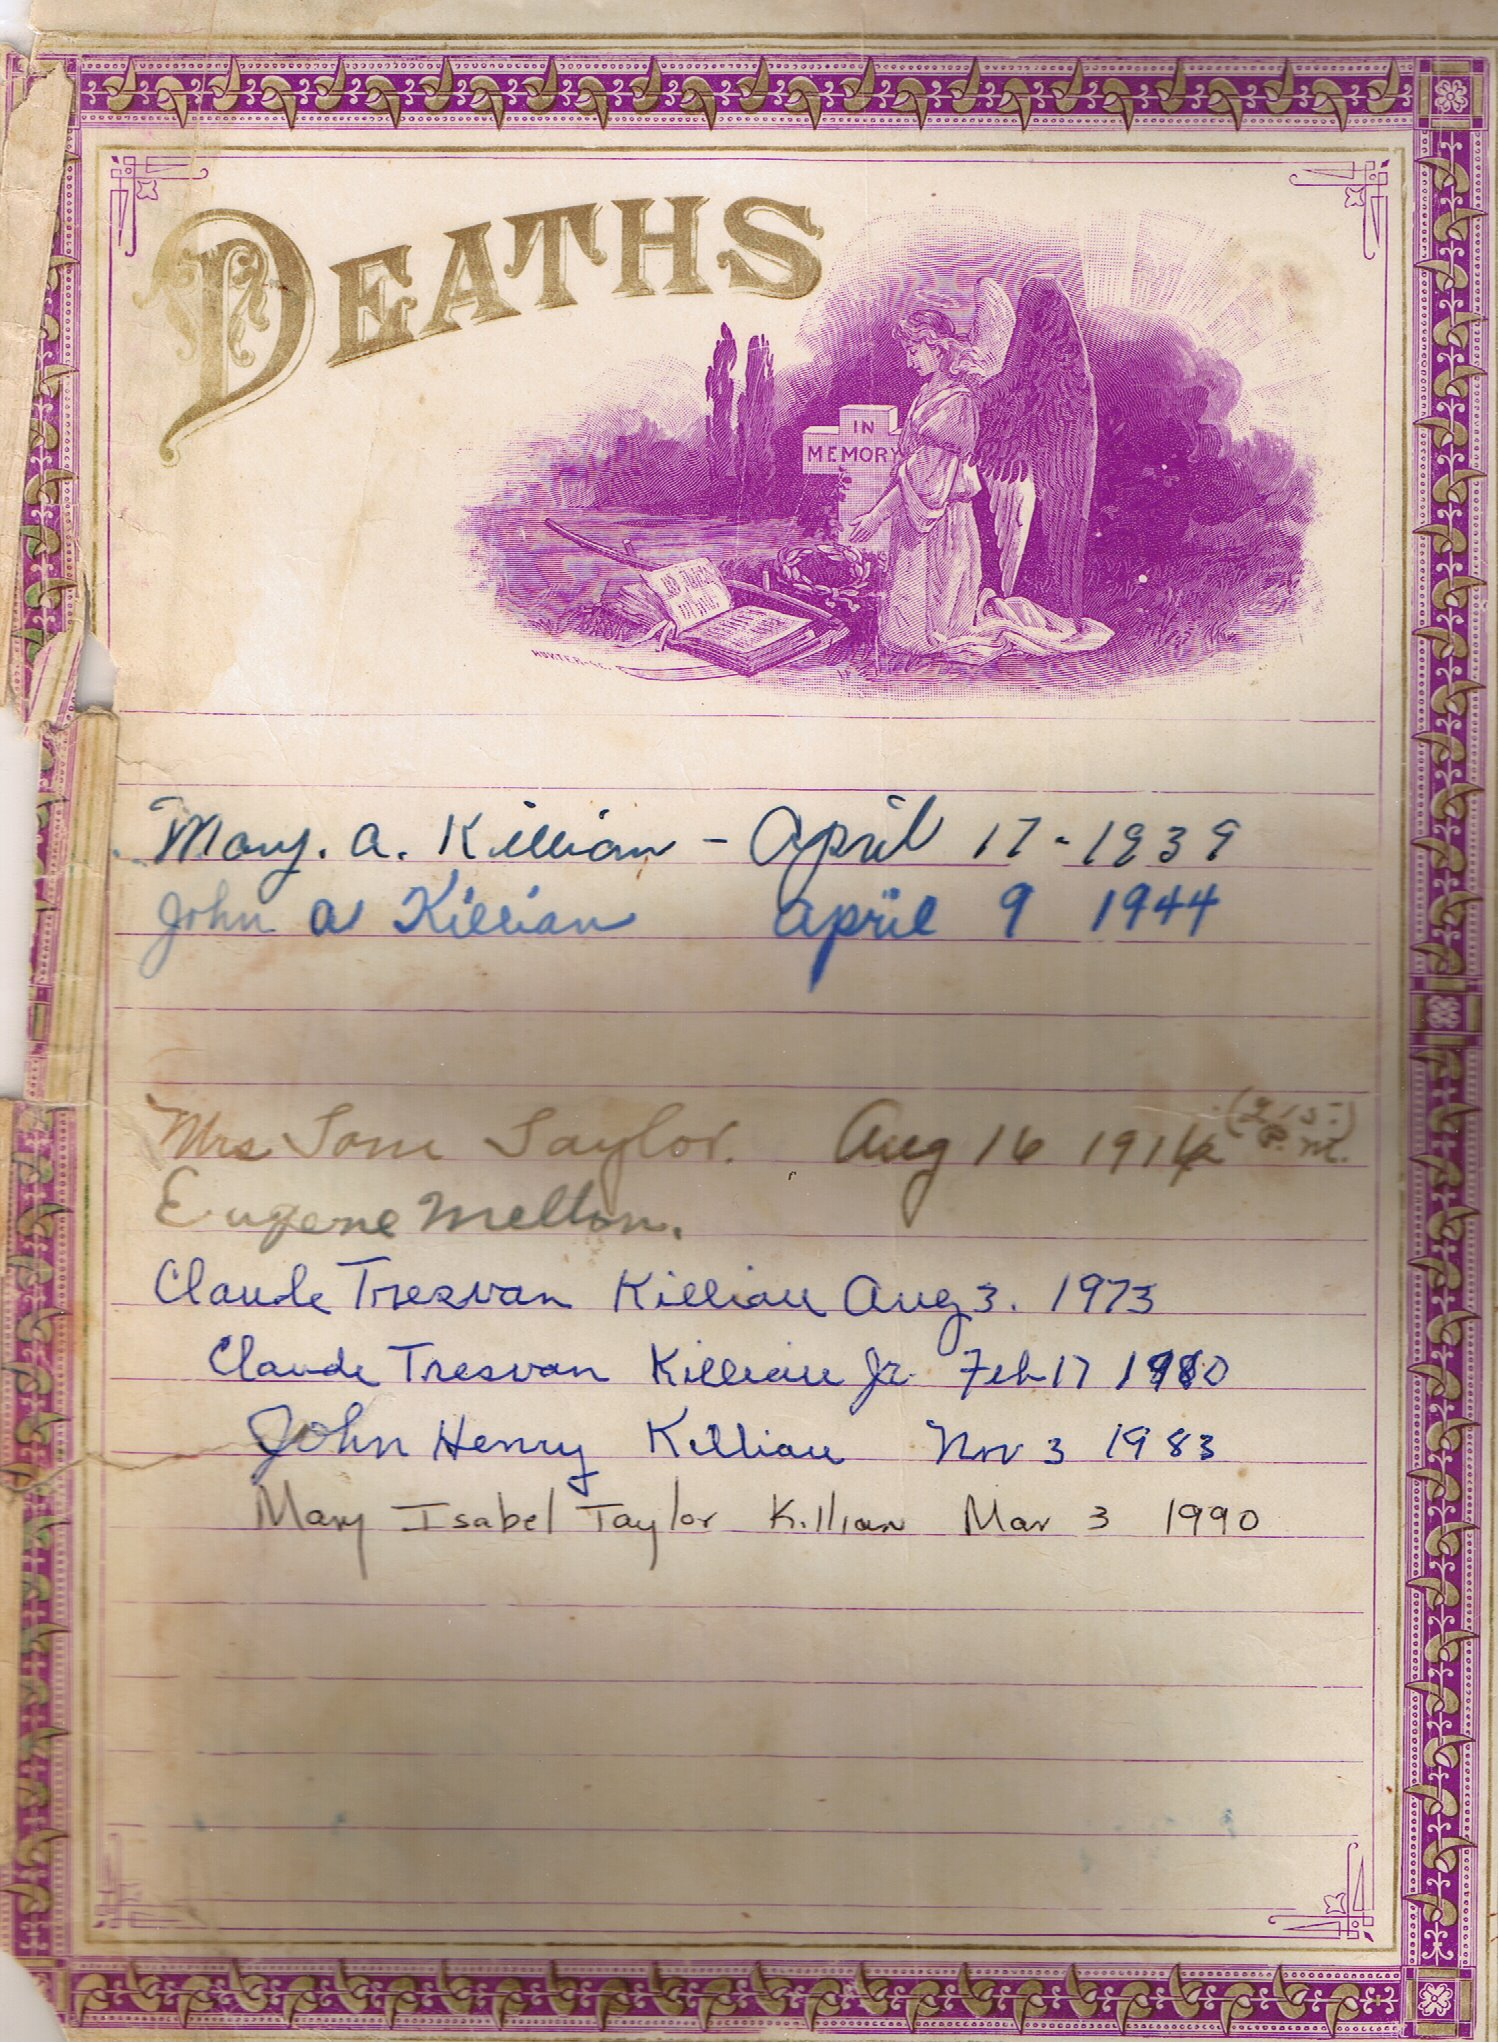 DEATHS
IN
MEMORY
Mary. A. Killian - April 17 - 1939
John A Killian April 9 1944
Mrs Tom Taylor. Aug 16 1916 (2 15-
P. M.)
Eugene Melton.
Claude Tresvan Killian Aug 3. 1973
Claude Tresvan Killian Jr. Feb 17 1980
John Henry Killian Nov 3 1983
Mary Isabel Taylor Killian Mar 3 1990